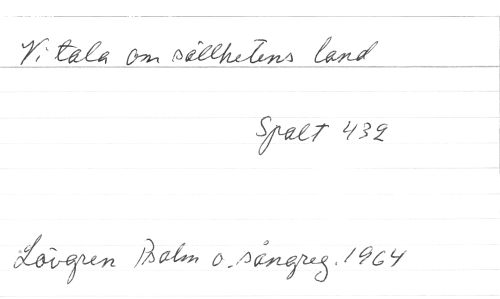 Vi tala om sällhetens land
Spalt 432
Lövgren Psalm o. sångreg. 1964